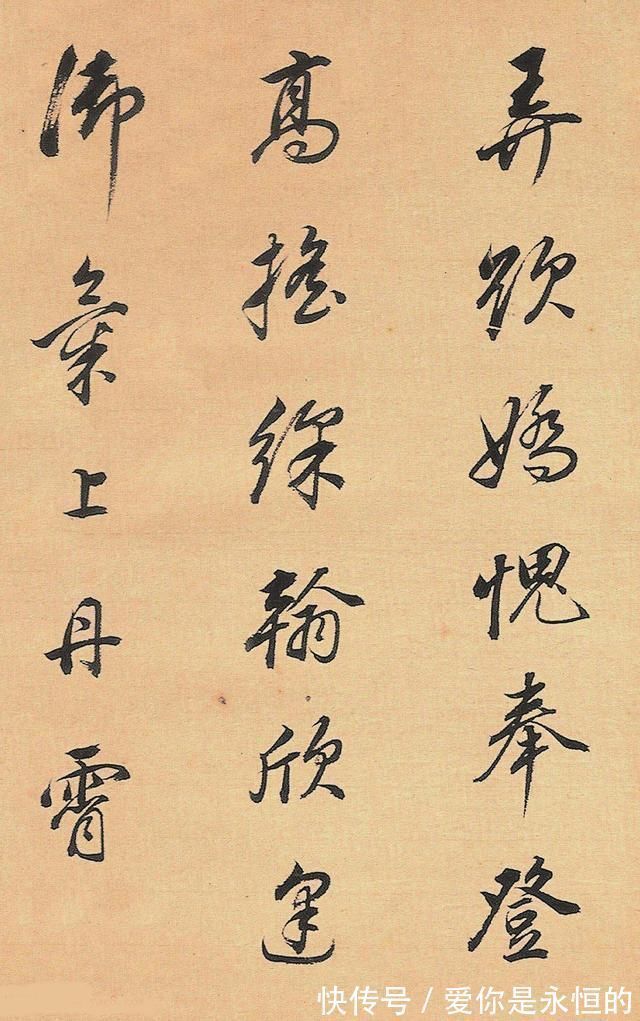 弄欲嬌愧奉登
高搖綵翰欣逢
御氣上丹霄
快传号/爱你是永恒的